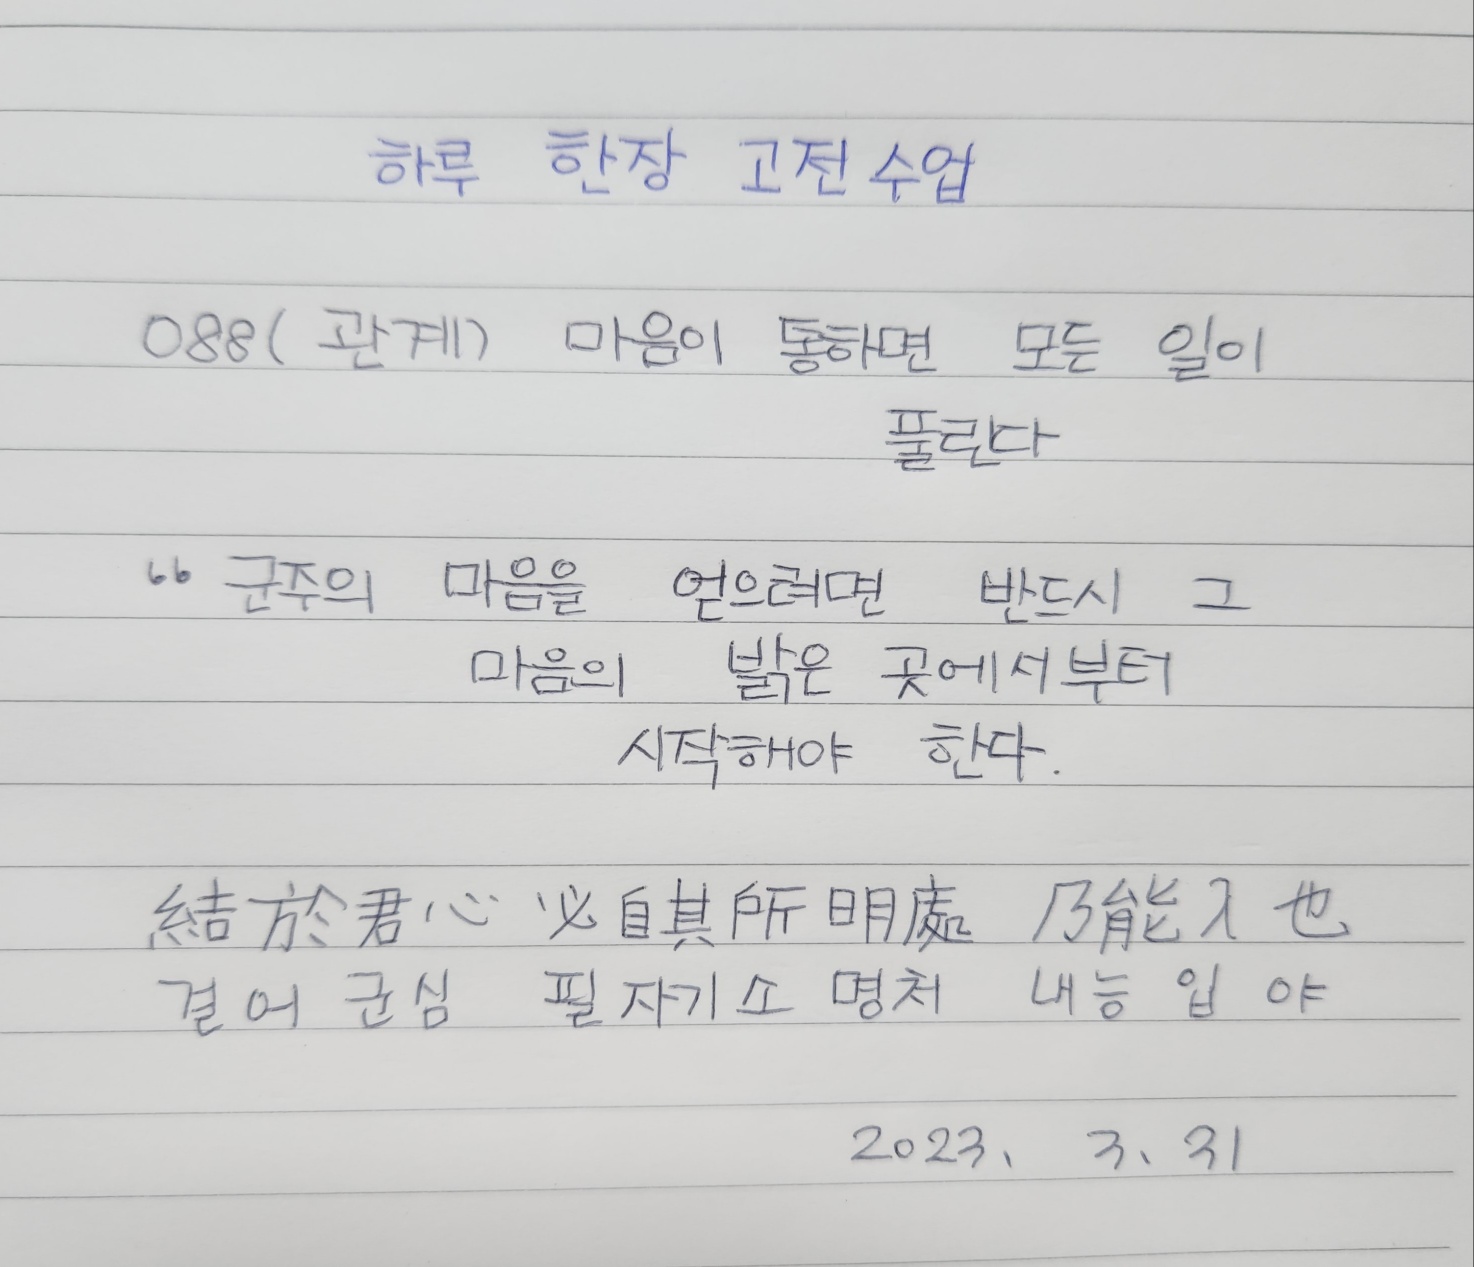 하루 한장 고전 수업
088(관계) 마음이 통하면 모든 일이
풀린다
“ 군주의 마음을 얻으려면 반드시 그
마음의 밝은 곳에서부터
시작해야 한다.
結於君心 必自其所明處 乃能入也
결어군심 필자기소명처 내능입야
2023. 3. 31